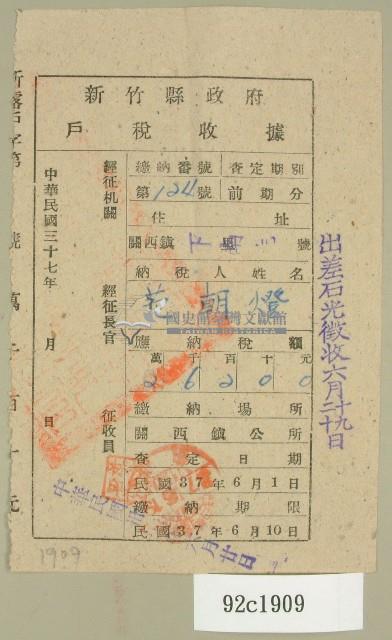 新竹縣政府
戶稅收據
查定期別
前期分
繳納番號
第124號
住址
關西鎮下南片 號
納稅人姓名
范朝燈
應納稅額
萬千百十元
26200
繳納場所
關西鎮公所
查定日期
民國37年6月1日
繳納期限
民國37年6月10日
經征机關
經征長官
征收員
中華民國三十七年 月 日
號 萬 千 百 十 元
出差石光徵收六月二十九日
國史館臺灣文獻館
1909
92c1909